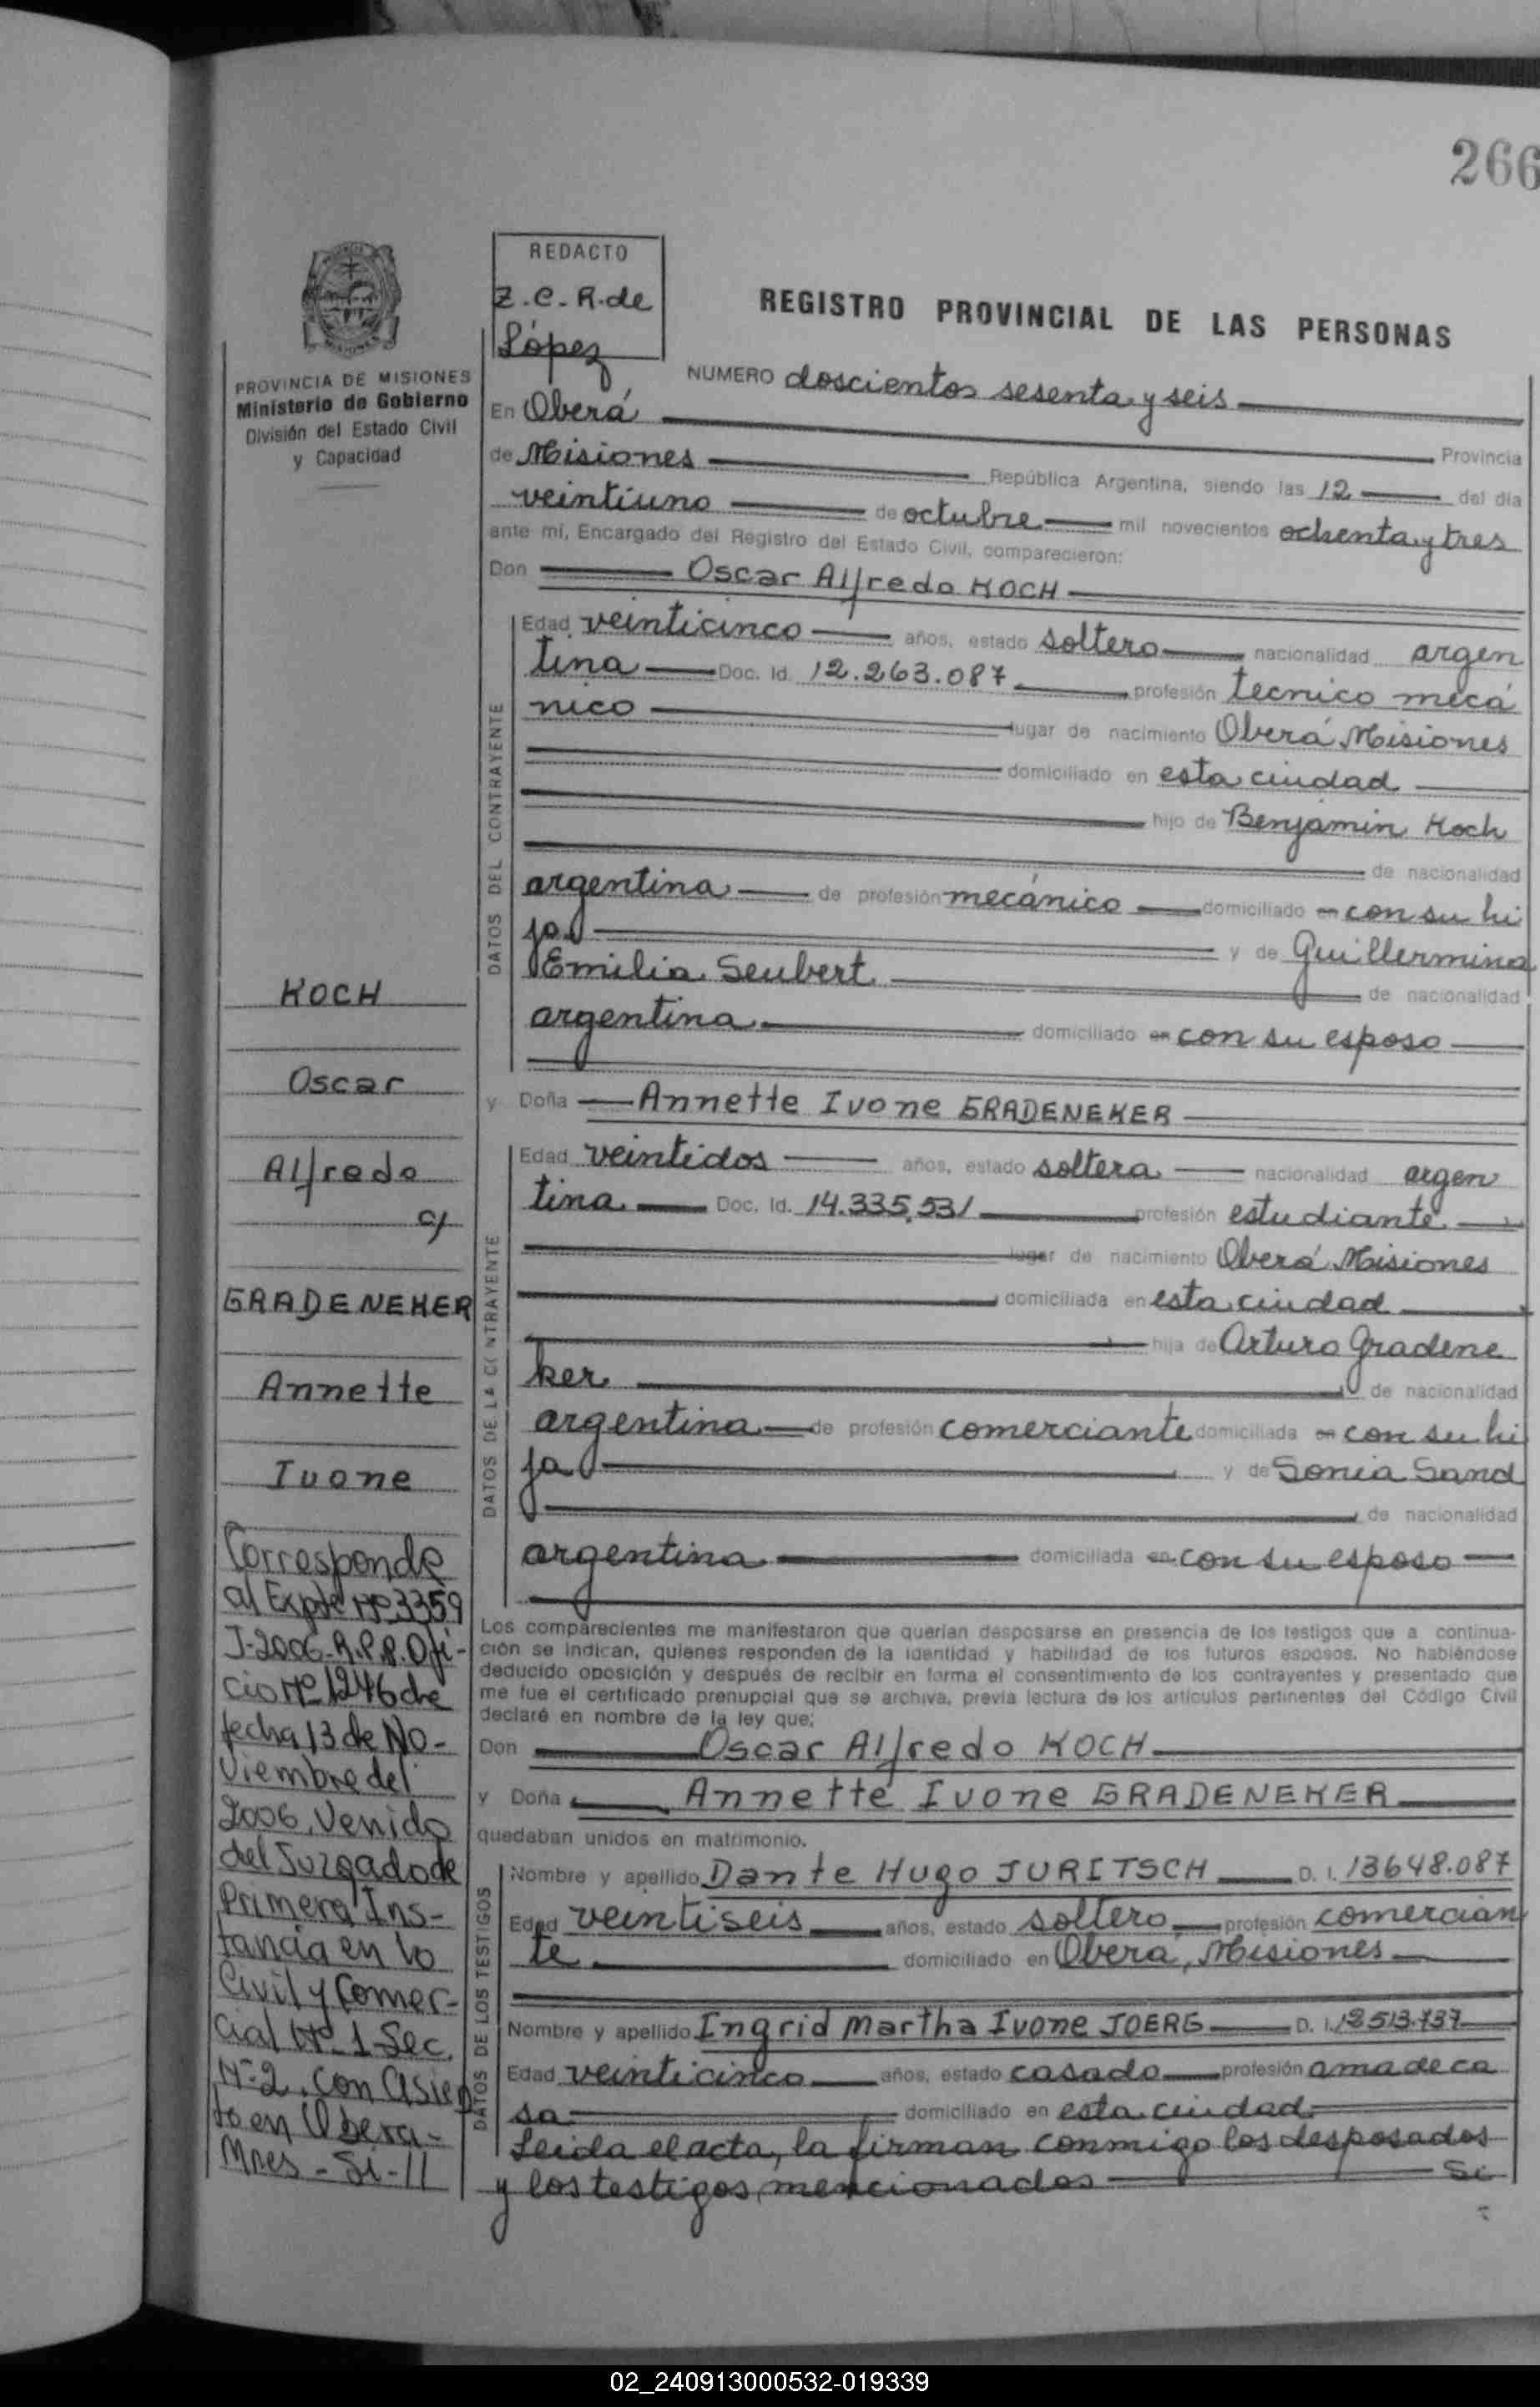 266
REDACTO
Z.C.R. de
López
REGISTRO PROVINCIAL DE LAS PERSONAS
PROVINCIA DE MISIONES
Ministerio de Gobierno
División del Estado Civil
y Capacidad
NUMERO doscientos sesenta y seis
En Oberá
Provincia
de Misiones República Argentina, siendo las 12 del día
veintiuno de octubre mil novecientos ochenta y tres
ante mí, Encargado del Registro del Estado Civil, comparecieron:
Don Oscar Alfredo KOCH
DATOS DEL CONTRAYENTE
Edad veinticinco años, estado soltero nacionalidad argen
tina Doc. Id. 12.263.087 profesión tecnico mecá
nico lugar de nacimiento Oberá Misiones
domiciliado en esta ciudad
hijo de Benjamin Koch
de nacionalidad
argentina de profesión mecánico domiciliado en con su hi
jo y de Guillermina
Emilia Seubert de nacionalidad
argentina domiciliado en con su esposo
y Doña Annette Ivone GRADENEKER
DATOS DE LA CONTRAYENTE
Edad veintidos años, estado soltera nacionalidad argen
tina Doc. Id. 14.335.531 profesión estudiante
lugar de nacimiento Oberá Misiones
domiciliada en esta ciudad
hija de Arturo Gradene
ker de nacionalidad
argentina de profesión comerciante domiciliada en con su hi
ja y de Sonia Sand
de nacionalidad
argentina domiciliada en con su esposo
Los comparecientes me manifestaron que querían desposarse en presencia de los testigos que a continua-
ción se indican, quienes responden de la identidad y habilidad de los futuros esposos. No habiéndose
deducido oposición y después de recibir en forma el consentimiento de los contrayentes y presentado que
me fue el certificado prenupcial que se archiva, previa lectura de los artículos pertinentes del Código Civil
declaré en nombre de la ley que:
Don Oscar Alfredo KOCH
y Doña Annette Ivone GRADENEKER
quedaban unidos en matrimonio.
DATOS DE LOS TESTIGOS
Nombre y apellido Dante Hugo JURITSCH D. I. 13648.087
Edad veintiseis años, estado soltero profesión comercian
te domiciliado en Oberá, Misiones
Nombre y apellido Ingrid Martha Ivone JOERG D. I. 12513.737
Edad veinticinco años, estado casado profesión ama de ca
sa domiciliado en esta ciudad
Leida el acta, la firman conmigo los desposados
y los testigos mencionados Si
KOCH
Oscar
Alfredo
c/
GRADENEKER
Annette
Ivone
Corresponde
al Expte Nº 3359
J-2006-R.P.P. Ofi-
cio Nº 1246 de
fecha 13 de No-
viembre del
2006, Venido
del Juzgado de
Primera Ins-
tancia en lo
Civil y Comer-
cial Nº 1 Sec.
Nº 2, con asien
to en Obera-
Mnes - Si - 11
02_240913000532-019339